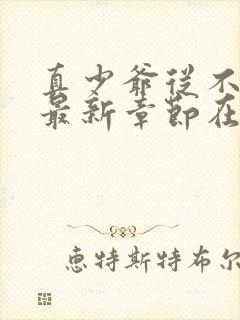 真少爷从不
最新章节在
惠特斯特布尔